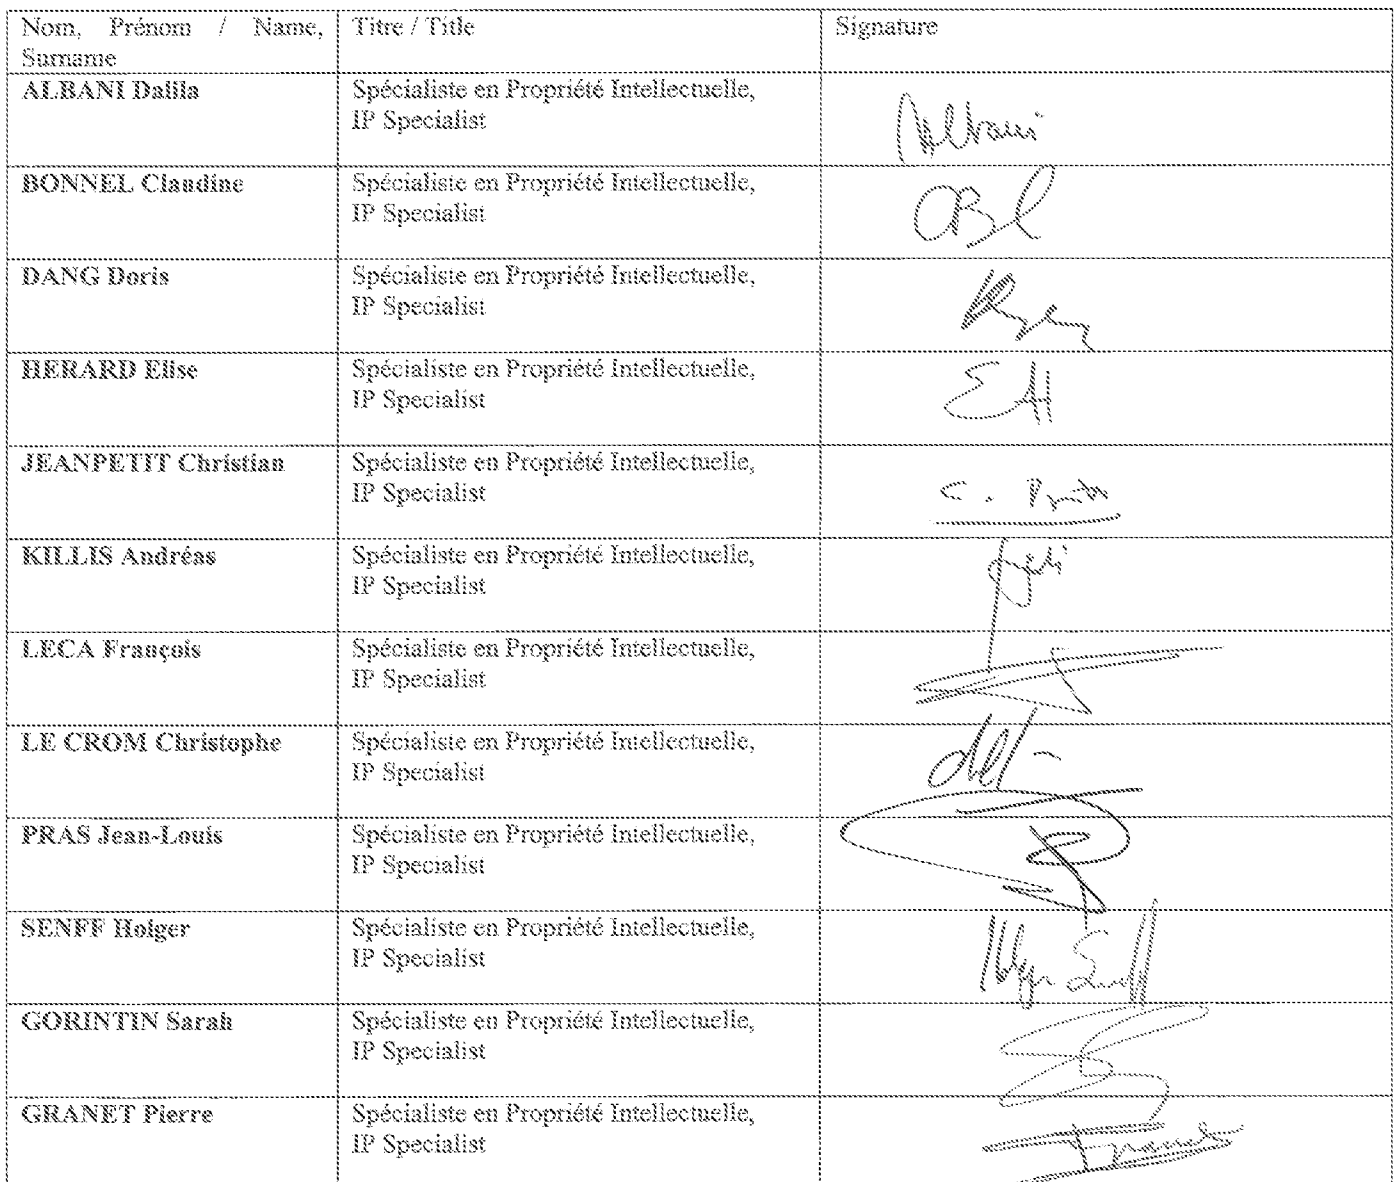 Nom, Prénom / Name, Titre / Title Signature
Surname
ALBANI Dalila Spécialiste en Propriété Intellectuelle,
IP Specialist
BONNEL Claudine Spécialiste en Propriété Intellectuelle,
IP Specialist
DANG Doris Spécialiste en Propriété Intellectuelle,
IP Specialist
HERARD Elise Spécialiste en Propriété Intellectuelle,
IP Specialist
JEANPETIT Christian Spécialiste en Propriété Intellectuelle,
IP Specialist
KILLIS Andréas Spécialiste en Propriété Intellectuelle,
IP Specialist
LECA François Spécialiste en Propriété Intellectuelle,
IP Specialist
LE CROM Christophe Spécialiste en Propriété Intellectuelle,
IP Specialist
PRAS Jean-Louis Spécialiste en Propriété Intellectuelle,
IP Specialist
SENFF Holger Spécialiste en Propriété Intellectuelle,
IP Specialist
GORINTIN Sarah Spécialiste en Propriété Intellectuelle,
IP Specialist
GRANET Pierre Spécialiste en Propriété Intellectuelle,
IP Specialist